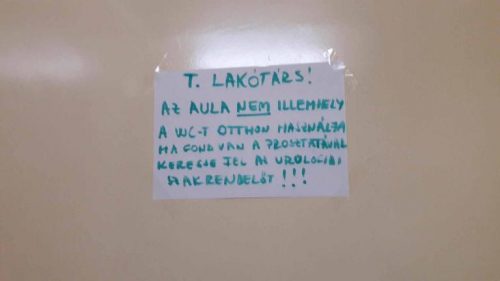 T. LAKÓTÁRS!
AZ AULA NEM ILLEMHELY
A WC-T OTTHON HASZNÁLJA
HA GOND VAN A PROSZTATÁVAL
KERESSE FEL AZ UROLÓGIAI
SZAKRENDELŐT!!!